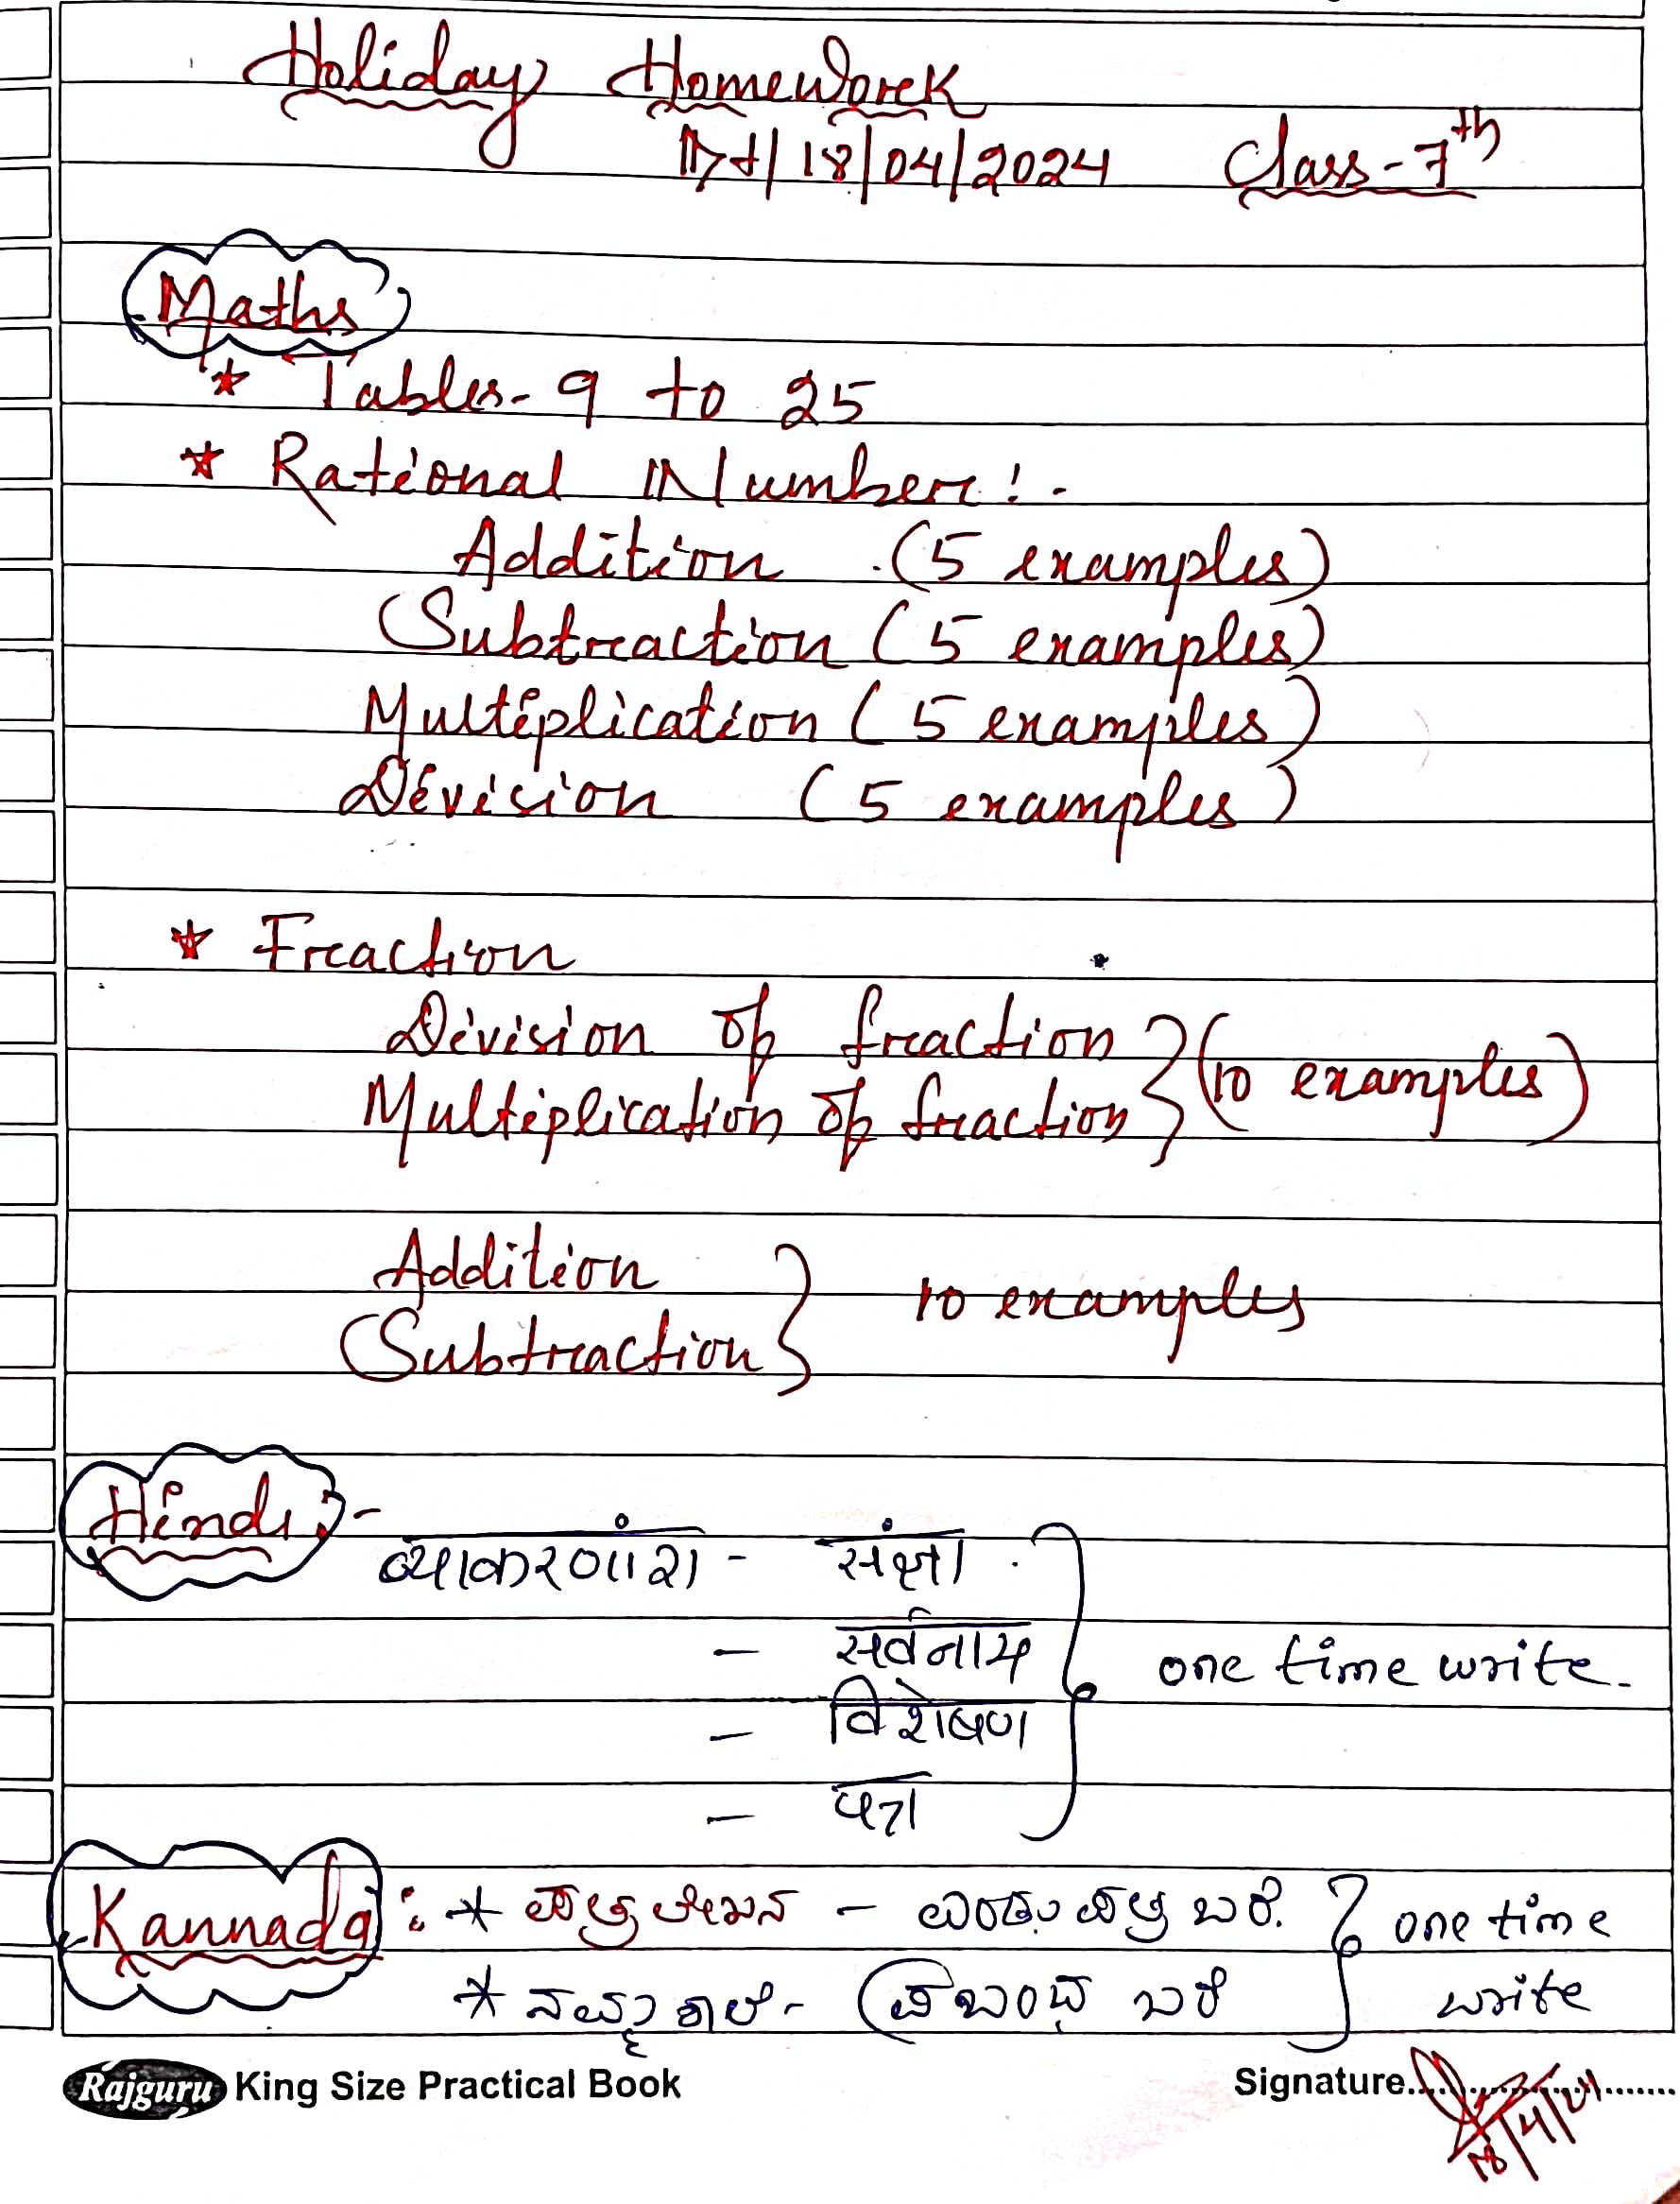 Holiday Homework
Dt/18/04/2024 Class-7th
Maths
* Tables- 9 to 25
* Rational Number:-
Addition (5 examples)
Subtraction (5 examples)
Multiplication (5 examples)
Division (5 examples)
* Fraction
Division of fraction } (10 examples)
Multiplication of fraction
Addition } 10 examples
Subtraction
Hindi:-
व्याकरणांश - संज्ञा
- सर्वनाम } one time write.
- विशेषण
- पत्र
Kannada: * ಪತ್ರ ಲೇಖನ - ಎರಡು ಪತ್ರ ಬರೆ. } one time
* ನಮ್ಮ ಶಾಲೆ - ಪ್ರಬಂಧ ಬರೆ write
Rajguru King Size Practical Book Signature..................
18/4/24